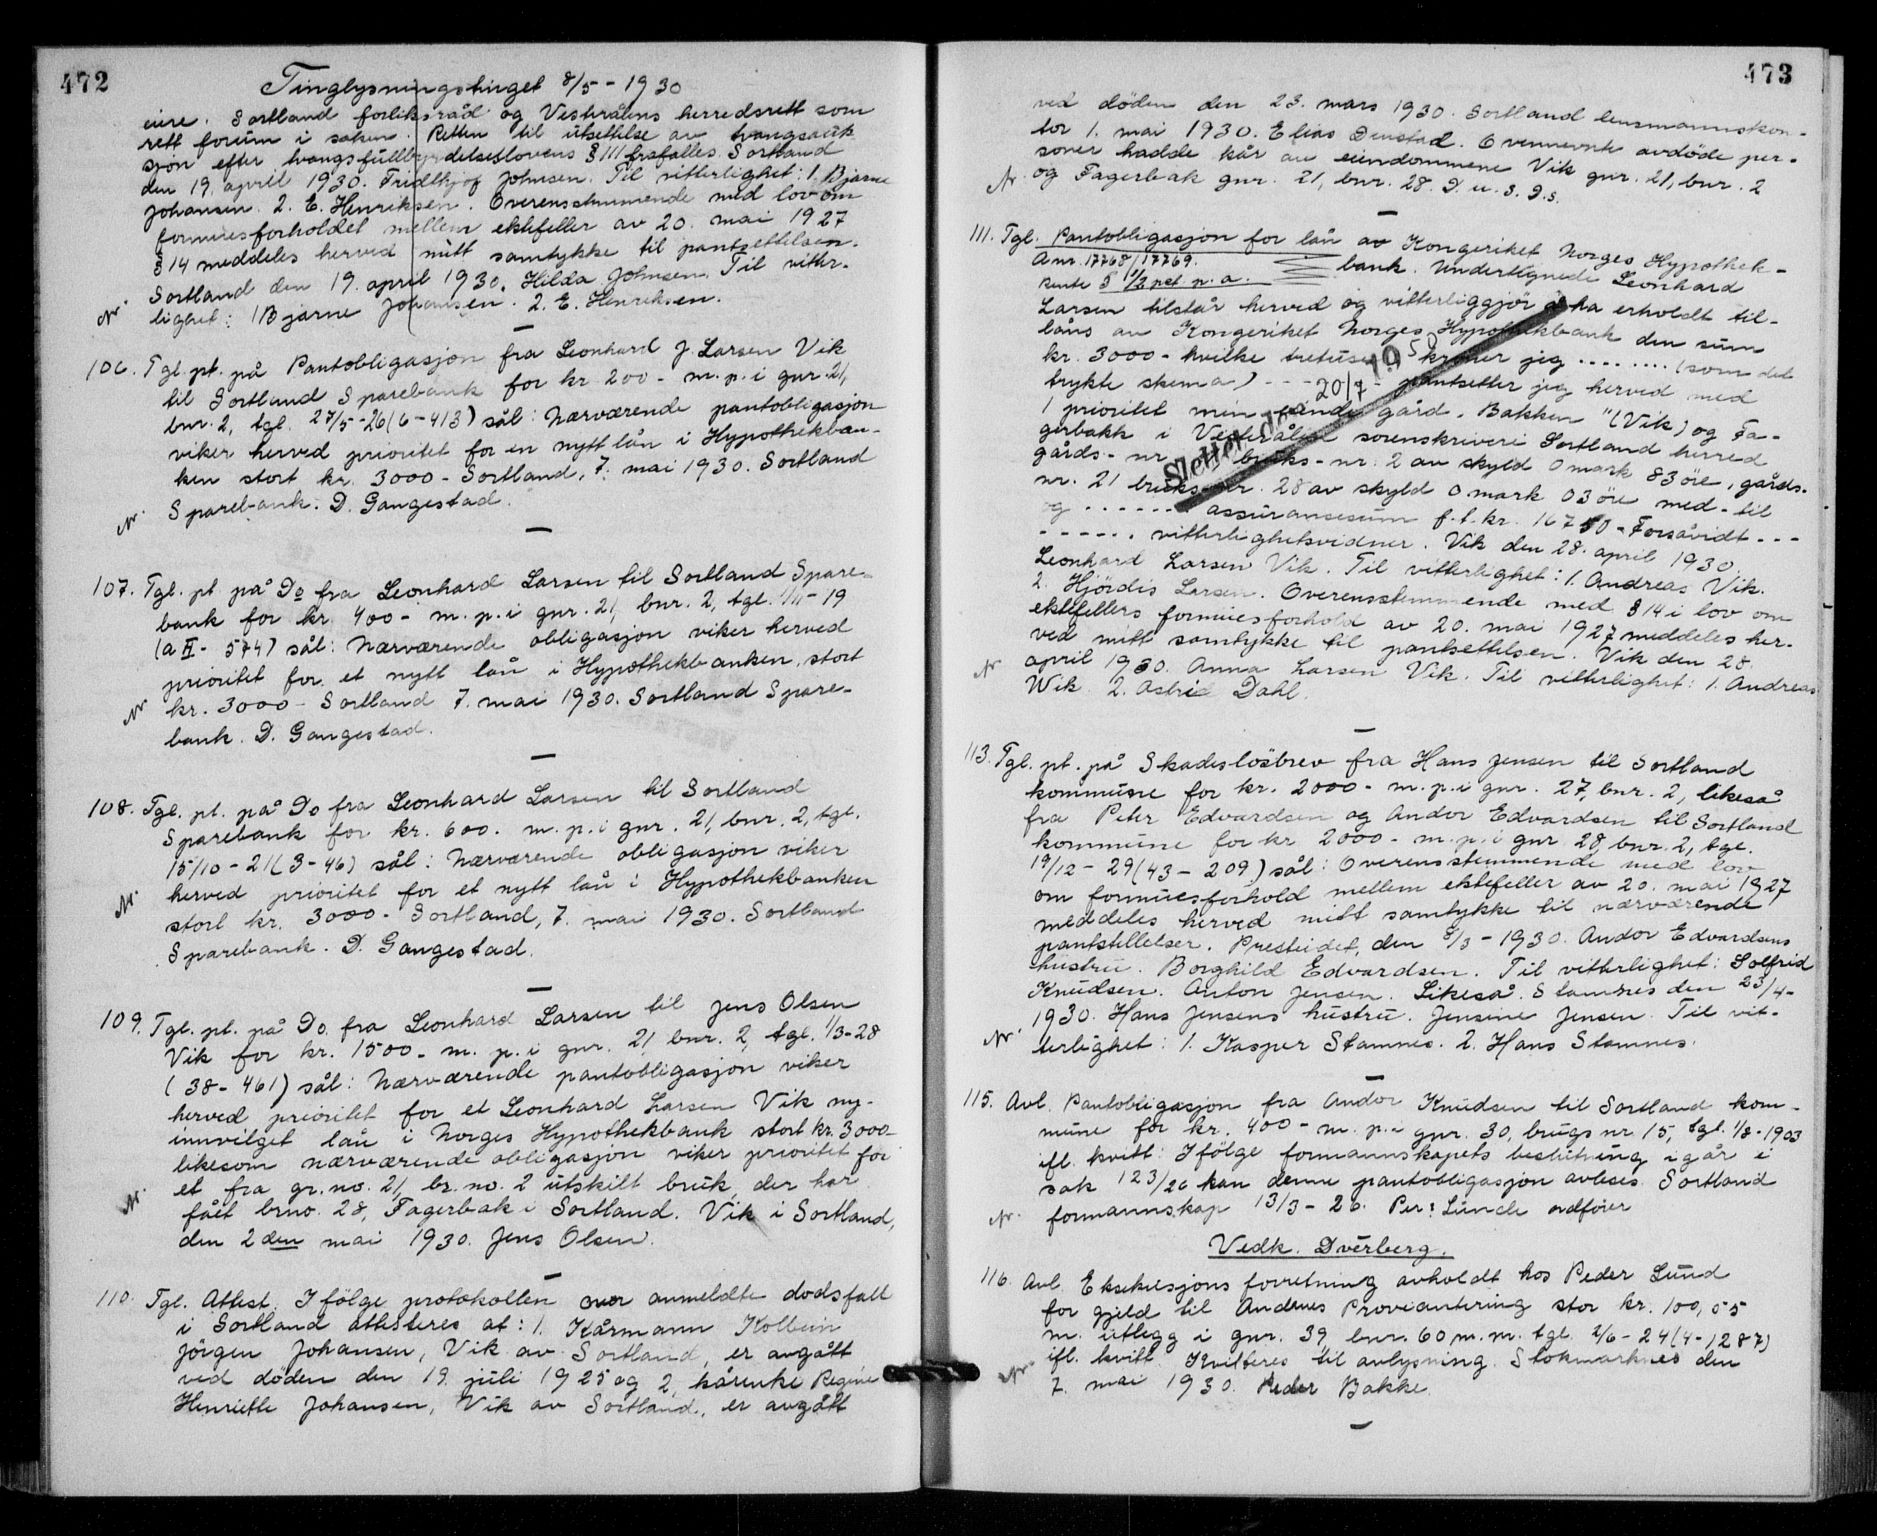 472
Tinglysningstinget 8/5 - 1930
eiere. Sortland forliksråd og Vesterålens herredsrett som
rett forum i saken. Retten til utsettelse av tvangsauk
sjon efter tvangsfullbyrdelseslovens § 111 frafalles. Sortland
den 19. april 1930. Fridthjof Johnsen. Til vitterlighet: 1. Bjarne
Johansen. 2. E. Henriksen. Overensstemmende med lov om
formuesforholdet mellem ektefeller av 20. mai 1927
§ 14 meddeles herved mitt samtykke til pantsettelsen.
Sortland den 19. april 1930. Hilda Johnsen. Til vitter-
lighet: 1 Bjarne Johansen. 2. E. Henriksen.
106. Tgl. pt. på Pantobligasjon fra Leonhard J. Larsen Vik
til Sortland Sparebank for kr 200 - m. p. i gnr. 21,
bnr. 2, tgl. 27/5-26 (6-413) sål: Nærværende pantobligasjon
viker herved prioritet for en nytt lån i Hypothekban-
ken stort kr. 3000 - Sortland, 7. mai 1930. Sortland
Sparebank. D. Gangestad.
107. Tgl. pt på Do fra Leonhard Larsen til Sortland Spare-
bank for kr 400 - m. p. i gnr. 21, bnr. 2, tgl. 1/11-19
(a II - 574) sål: Nærværende obligasjon viker herved
prioritet for et nytt lån i Hypothekbanken, stort
kr. 3000 - Sortland 7. mai 1930. Sortland Spare-
bank. D. Gangestad.
108. Tgl. pt. på Do fra Leonhard Larsen til Sortland
Sparebank for kr. 600. m. p. i gnr. 21, bnr. 2, tgl.
15/10-21 (3-46) sål: Nærværende obligasjon viker
herved prioritet for et nytt lån i Hypothekbanken
stort kr. 3000 - Sortland, 7. mai 1930. Sortland
Sparebank. D. Gangestad.
109. Tgl. pt. på Do. fra Leonhard Larsen til Jens Olsen
Vik for kr. 1500 - m. p. i gnr. 21 bnr. 2, tgl. 1/3-28
(38-461) sål: Nærværende pantobligasjon viker
herved prioritet for et Leonhard Larsen Vik ny-
innvilget lån i Norges Hypothekbank stort kr. 3000-
likesom nærværende obligasjon viker prioritet for
et fra gr. no. 21, br. no. 2 utskilt bruk, der har
fått brno. 28, Fagerbak i Sortland. Vik i Sortland,
den 2den mai 1930. Jens Olsen.
110. Tgl. Attest. Ifölge protokollen over anmeldte dödsfall
i Sortland attesteres at: 1. Kårmann Kolbein
Jörgen Johansen, Vik av Sortland, er avgått
ved döden den 19. juli 1925 og 2, kårenke Regine
Henriette Johansen, Vik av Sortland, er avgått
473
ved döden den 23. mars 1930. Sortland lensmannskon-
tor 1. mai 1930. Elias Denstad. Ovennevnte avdöde per-
soner hadde kår av eiendommene Vik gnr. 21, bnr. 2
og Fagerbak gnr. 21, bnr. 28. D. u. s. D.s.
111. Tgl. Pantobligasjon for lån av Kongeriket Norges Hypothek-
Anr. 17768/17769. bank. Undertegnede Leonhard
Rente 5 1/2 pct. p. a.
Larsen tilstår herved og vitterliggjör å ha erholdt til-
låns av Kongeriket Norges Hypothekbank den sum
kr. 3000 - hvilke tretusen kroner jeg ........ (som det
trykte skema) - - - pantsetter jeg herved med
Slettet den 20/7 - 1950
1 prioritet min eiende gård. Bakken "(Vik) og Fa-
gerbakk i Vesterålen sorenskriveri Sortland herred
gårds-nr bruks-nr. 2 av skyld 0 mark 83 öre, gårds-
nr. 21 bruks-nr. 28 av skyld 0 mark 03 öre med - til
og ...... assuransesum f. t. kr. 16750 - Forsåvidt ---
------. vitterlighetsvidner. Vik den 28. april 1930.
Leonhard Larsen Vik. Til vitterlighet: 1. Andreas Vik.
2. Hjördis Larsen. Overensstemmende med § 14 i lov om
ektefellers formuesforhold av 20. mai 1927 meddeles her-
ved mitt samtykke til pantsettelsen. Vik den 28.
april 1930. Anna Larsen Vik. Til vitterlighet: 1. Andreas
Wik. 2. Astrid Dahl.
113. Tgl. pt. på Skadeslösbrev fra Hans Jensen til Sortland
kommune for kr. 2000 - m. p. i gnr. 27, bnr. 2, likeså
fra Peter Edvardsen og Andor Edvardsen til Sortland
kommune for kr 2000 - m. p. i gnr 28, bnr. 2, tgl.
19/12-29 (43-209) sål: Overensstemmende med lov
om formuesforhold mellem ektefeller av 20. mai 1927
meddeles herved mitt samtykke til nærværende
pantstillelser. Presteidet, den 8/3-1930. Andor Edvardsens
hustru. Borghild Edvardsen. Til vitterlighet: Solfrid
Knudsen. Anton Jensen. Likeså. Stamnes den 23/4-
1930. Hans Jensens hustru. Jensine Jensen. Til vit-
terlighet: 1. Kasper Stamnes. 2. Hans Stamnes.
115. Avl. Pantobligasjon fra Andor Knudsen til Sortland kom-
mune for kr. 400 - m. p. i gnr. 30, brugs nr 15, tgl. 1/8-1903
ifl. kvitt: Ifölge formannskapets beslutning igår i
sak 123/26 kan denne pantobligasjon avleses. Sortland
formannskap 13/3-26. Per: Lunde ordförer
Vedk. Dverberg.
116. Avl. Eksekusjons forretning avholdt hos Peder Lund
for gjeld til Andenes Proviantering stor kr. 100,55
m. utlegg i gnr. 39, bnr. 60 m. m. tgl. 2/6-24 (4-1287)
ifl. kvitt. Kvitteres til avlysning. Stokmarknes den
7. mai 1930. Peder Bakke.